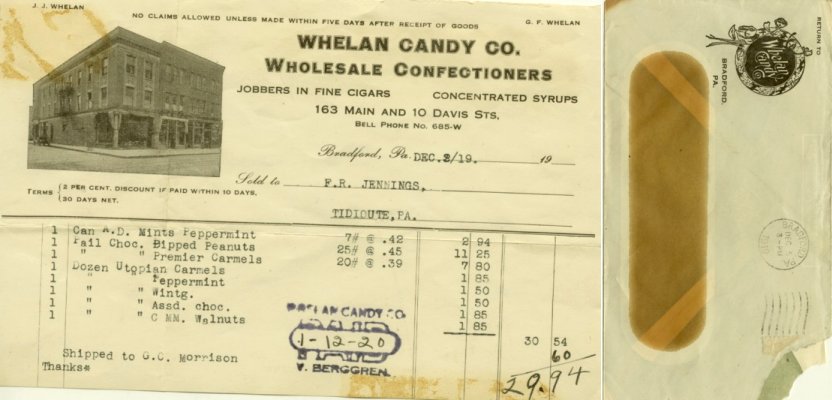 J. J. WHELAN
NO CLAIMS ALLOWED UNLESS MADE WITHIN FIVE DAYS AFTER RECEIPT OF GOODS
G. F. WHELAN
WHELAN CANDY CO.
WHOLESALE CONFECTIONERS
JOBBERS IN FINE CIGARS CONCENTRATED SYRUPS
163 MAIN AND 10 DAVIS STS,
BELL PHONE NO. 685-W
Bradford, Pa. DEC.2/19. 19
Sold to F.R. JENNINGS,
TIDIOUTE,PA.
TERMS { 2 PER CENT. DISCOUNT IF PAID WITHIN 10 DAYS.
30 DAYS NET.
1 Can A.D. Mints Peppermint 7# @ .42 2 94
1 Pail Choc. Dipped Peanuts 25# @ .45 11 25
1 " " Premier Carmels 20# @ .39 7 80
1 Dozen Utopian Carmels 1 85
1 " " Peppermint 1 50
1 " " Wintg. 1 50
1 " " Assd. choc. 1 85
1 " " C MM. Walnuts 1 85
30 54
60
29.94
Shipped to G.C. Morrison
Thanks*
WHELAN CANDY CO.
PAID
1-12-20
V. BERGGREN.
RETURN TO
Whelan
BRADFORD,
PA.
BRADFORD
DEC
PA